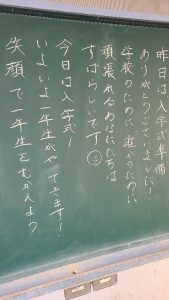 昨日は入学式準備
ありがとうございました!
学校のために 誰かのために
頑張れるあなたたちは
すばらしいです☺
今日は入学式!
いよいよ一年生がやってきます!
笑顔で一年生をむかえよう